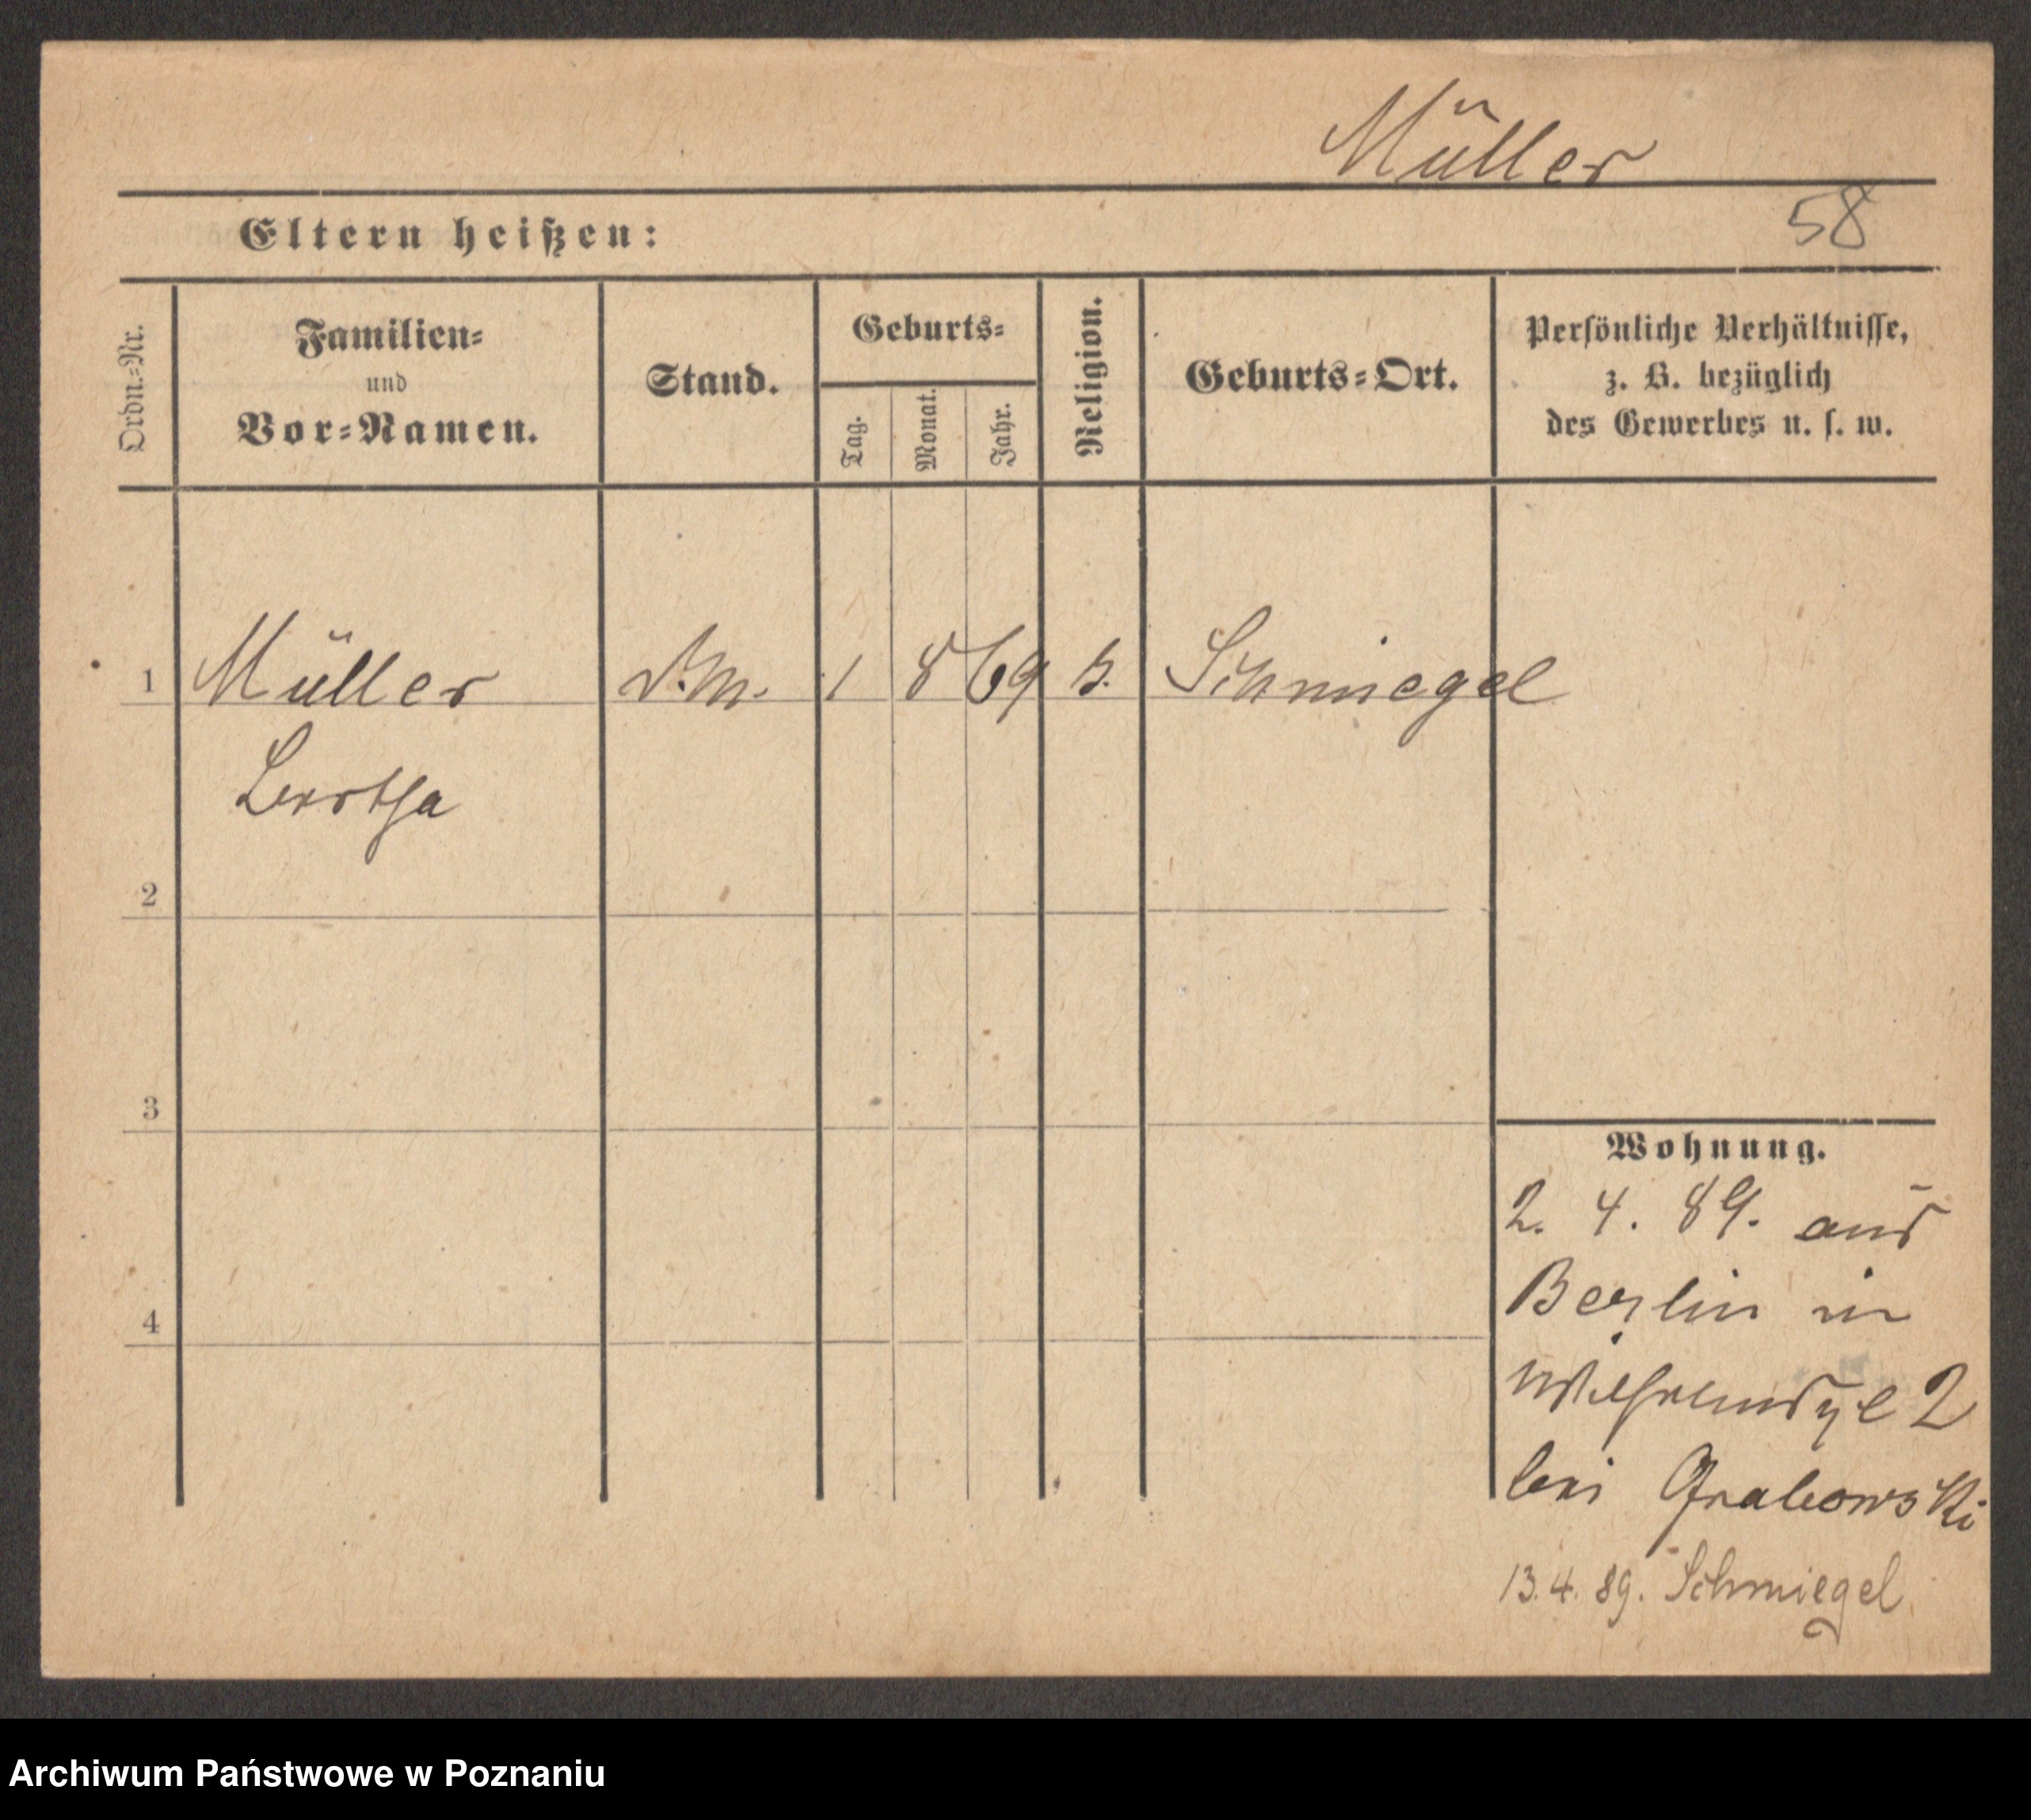 Müller
58
Eltern heißen:
Ordn.=Nr.
Familien=
und
Vor=Namen.
Stand.
Geburts=
Tag.
Monat.
Jahr.
Religion.
Geburts=Ort.
Persönliche Verhältnisse,
z. B. bezüglich
des Gewerbes u. s. w.
1 Müller D.M. 1 8 69 Schmiegel
2
3
4
Wohnung.
2. 4. 89. aus
Berlin in
2
bei Grabowski
13. 4. 89. Schmiegel
Archiwum Państwowe w Poznaniu